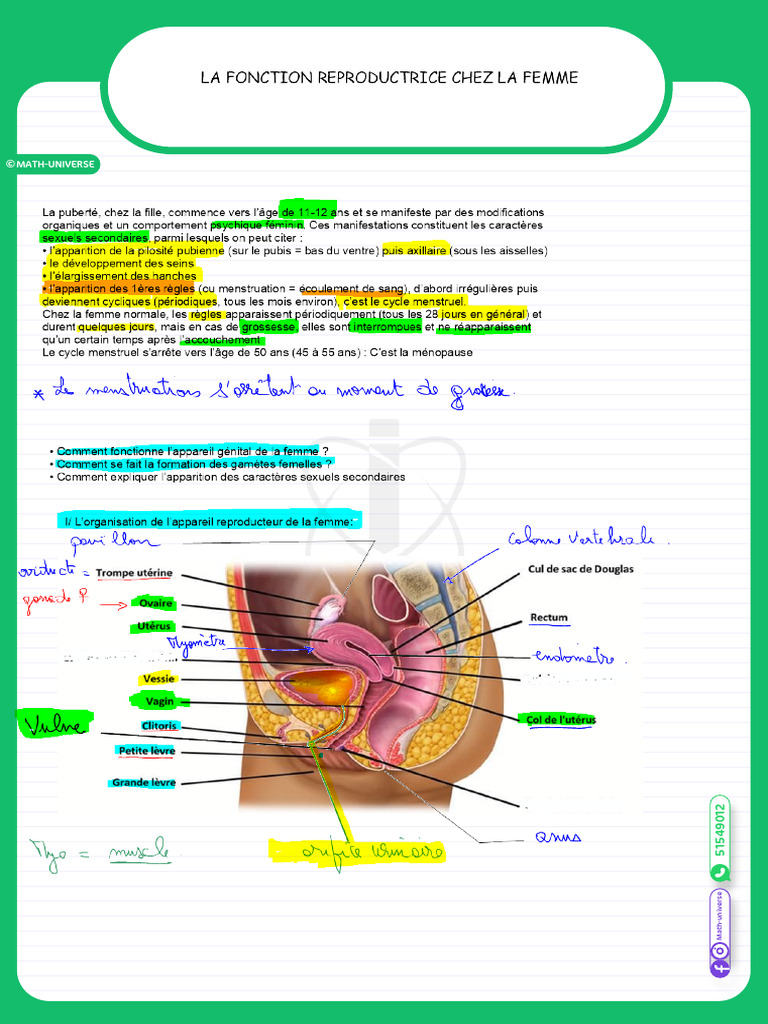 LA FONCTION REPRODUCTRICE CHEZ LA FEMME
© MATH-UNIVERSE
La puberté, chez la fille, commence vers l'âge de 11-12 ans et se manifeste par des modifications
organiques et un comportement psychique féminin. Ces manifestations constituent les caractères
sexuels secondaires, parmi lesquels on peut citer :
• l'apparition de la pilosité pubienne (sur le pubis = bas du ventre) puis axillaire (sous les aisselles)
• le développement des seins
• l'élargissement des hanches
• l'apparition des 1ères règles (ou menstruation = écoulement de sang), d'abord irrégulières puis
deviennent cycliques (périodiques, tous les mois environ), c'est le cycle menstruel.
Chez la femme normale, les règles apparaissent périodiquement (tous les 28 jours en général) et
durent quelques jours, mais en cas de grossesse, elles sont interrompues et ne réapparaissent
qu'un certain temps après l'accouchement
Le cycle menstruel s'arrête vers l'âge de 50 ans (45 à 55 ans) : C'est la ménopause
* Les menstruations s'arrêtent au moment de
• Comment fonctionne l'appareil génital de la femme ?
• Comment se fait la formation des gamètes femelles ?
• Comment expliquer l'apparition des caractères sexuels secondaires
I/ L'organisation de l'appareil reproducteur de la femme:
pavillon
colonne vertébrale.
oviducte = Trompe utérine
Cul de sac de Douglas
gonade ♀ → Ovaire
Rectum
Utérus
Myomètre
endomètre.
Vessie
Vagin
Col de l'utérus
Vulve
Clitoris
Petite lèvre
Grande lèvre
anus
Myo = muscle
orifice urinaire
51549012
Math-universe